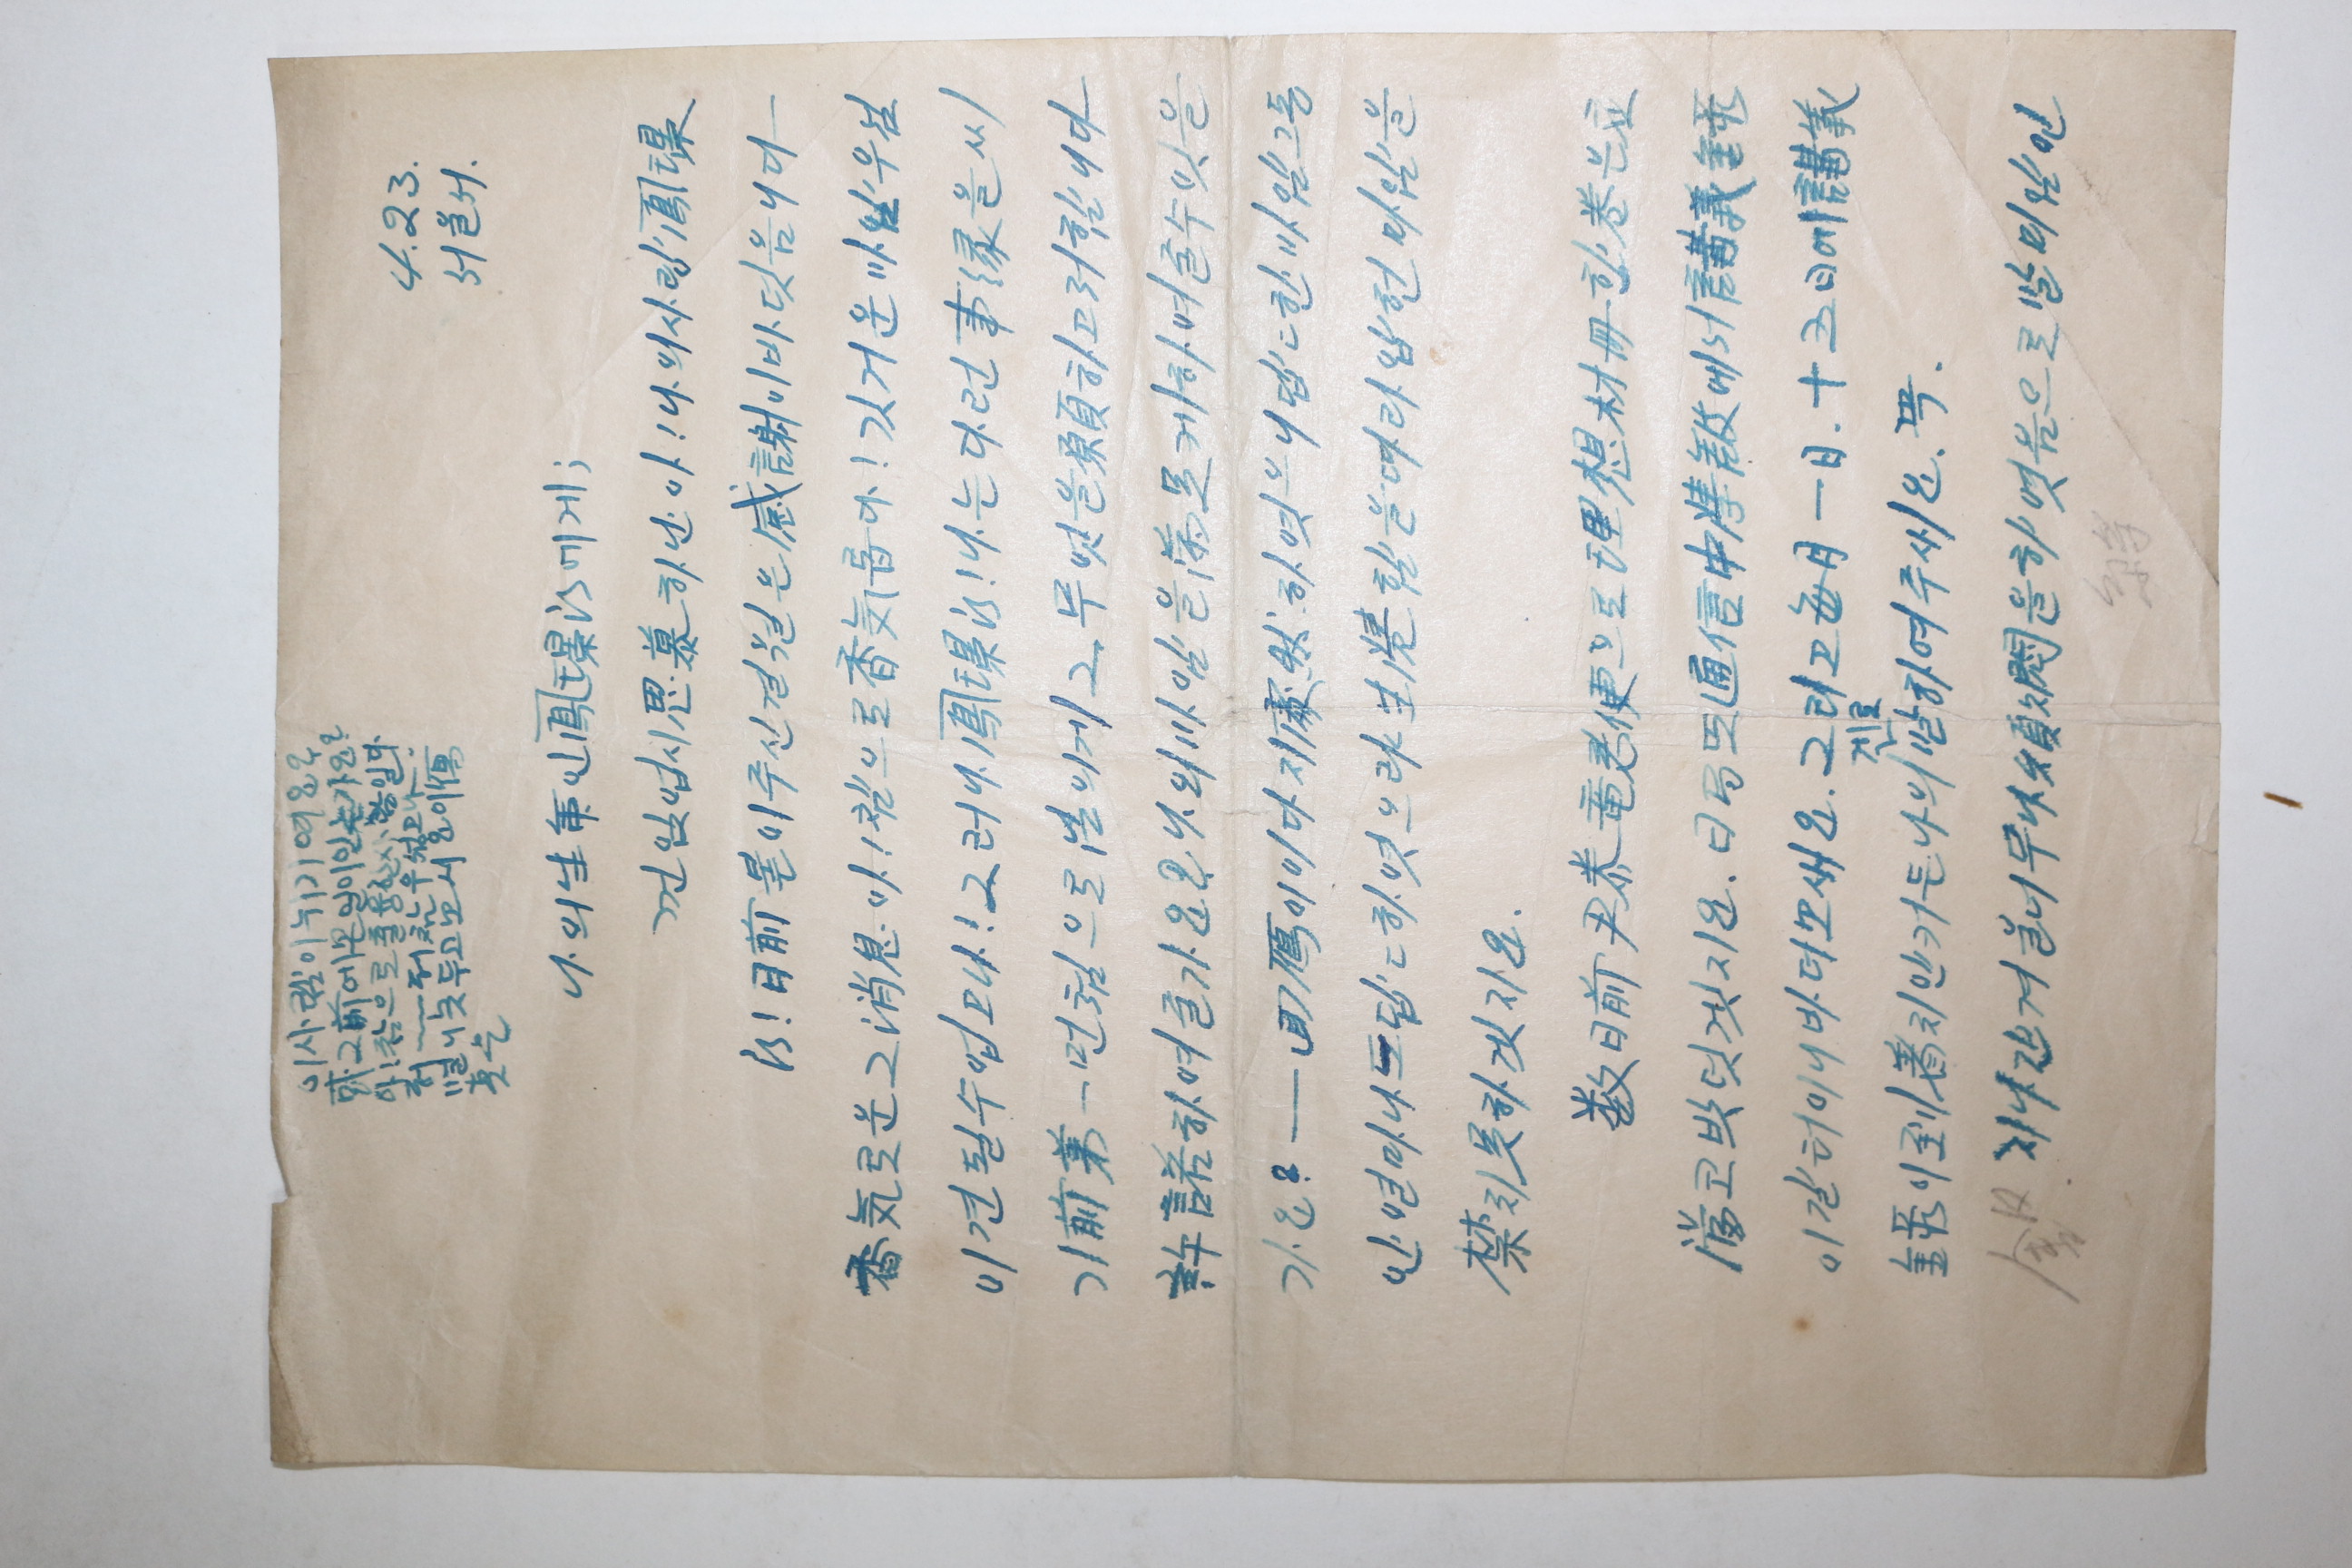 이사람이뉘기여요?
或그前에본일이잇는가요?
아!참으로훌늉한사람일다
허──허참우섭고나.
별니웃두고보시요이寫
真은
4.23.
서울서.
나의生命인鳳璟氏에게;
끈임업시思慕하난아!나의사랑鳳璟
氏!日前붙이주신걸월은感謝이바덧음니다
香気로운그消息아!참으로香気롭다!깃거운마암우넘
이견될수업고나!그러나鳳璟氏!나는다런事緣을씨
기前第一먼첨으로님의게그무엇을願하고저함니다
許諾하여줄가요?나의마암을滿足케하여줄수잇을
가요?──回雁이이다지寂然하엿으니답답한마암그동
안얼마나또답답하엿으랴生覺함을따라압헌마암을
禁치못하겟지요.
数日前尹泰竜君便으로理想村冊한卷은立
當코밧덧겟지요.日間또通信中學校에서講義錄
이갈터이니바더보씨요.그리고每月一日.十五日에講義
錄이到着치안커든나의게로말하여주씨요.꼭.
지나간겨울너무나煩悶을하엿음으로말미암인